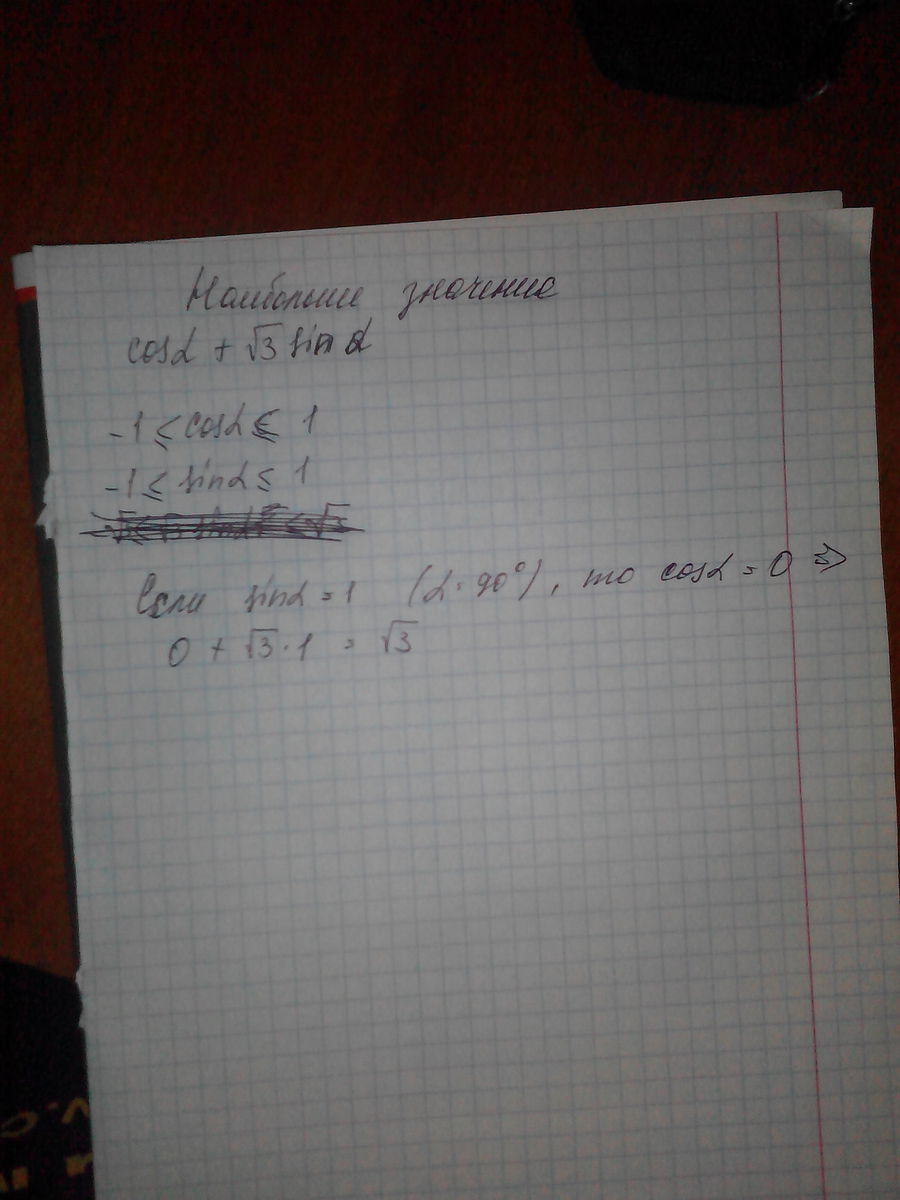 Наибольшее значение
cosα + √3 sin α
-1 ≤ cosα ≤ 1
-1 ≤ sinα ≤ 1
Если sinα = 1 (α = 90°), то cosα = 0 ⇒
0 + √3 · 1 = √3